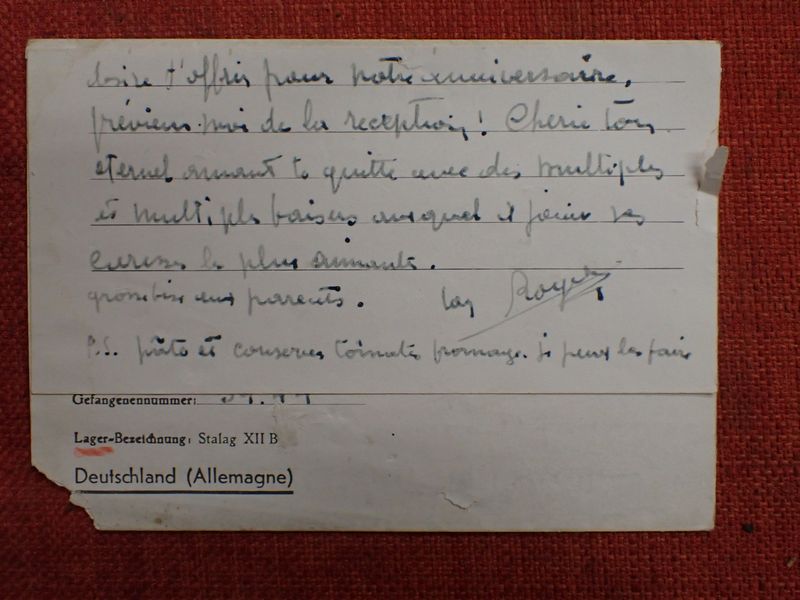 désire t'offrir pour notre anniversaire,
préviens-moi de la reception! Cherie ton
eternel amant te quitte avec des multiples
et multiples baisers auxquel il joint ses
caresses les plus aimante.
grosse bise aux parents. ton Roger
P.S. pâte et conserves tomates fromage. je peux les faire
Gefangenennummer:
Lager-Bezeichnung: Stalag XII B
Deutschland (Allemagne)